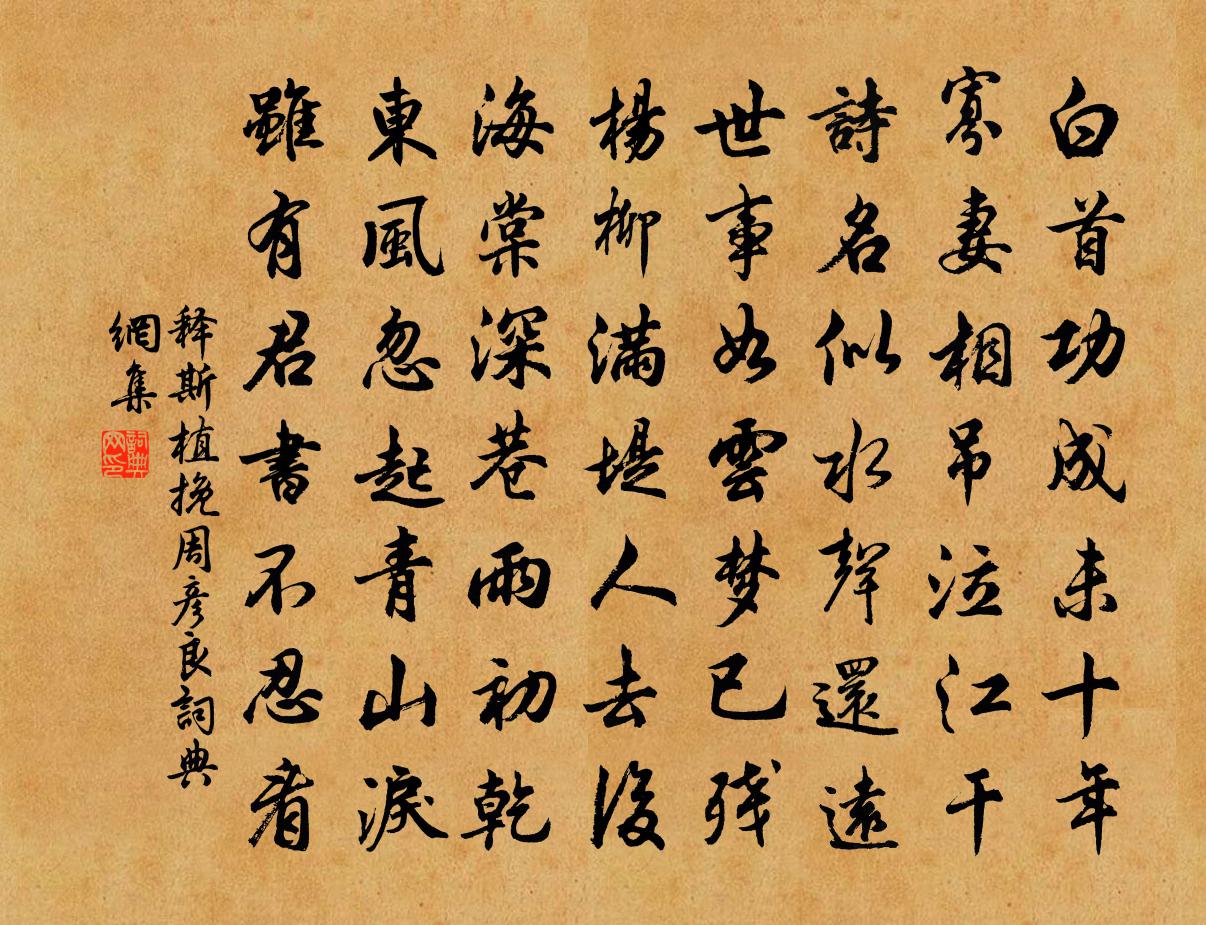 白首功成未十年
寡妻相吊泣江干
詩名似水聲還遠
世事如雲梦已残
楊柳滿堤人去後
海棠深巷雨初乾
東風忽起青山淚
雖有君書不忍看
释斯植挽周彦良詞典
網集
詞典
网印